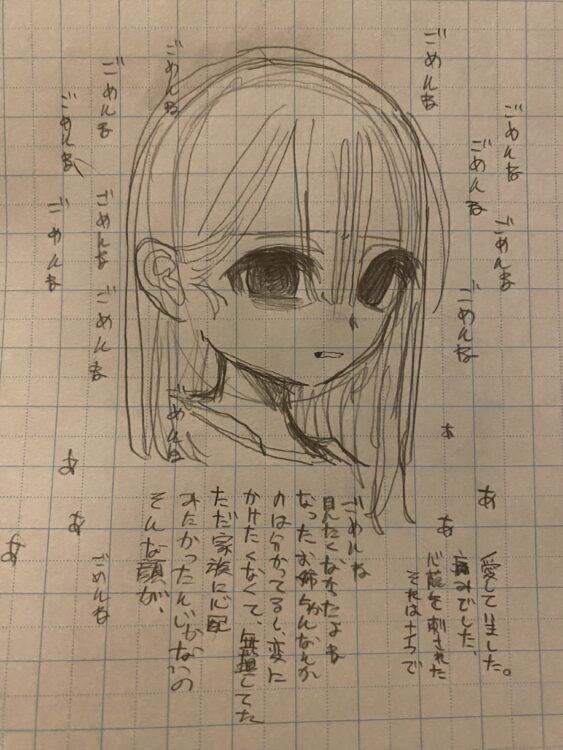 ごめんね
ごめんね
ごめんね
ごめんね
ごめんね
ごめんね
ごめんね
ごめんね
ごめんね
ごめんね
ごめんね
ごめんね
あ
あ
あ
あ
あ
あ
ごめんね
そんな顔が、
みたかったんじゃないの
ただ家族に心配
かけたくなくて、無理してた
のは分かってるし、変に
なったお姉ちゃんなんか
見たくなかったよね
ごめんね
それはまるで
心臓を刺された
痛みでした、
愛していました。